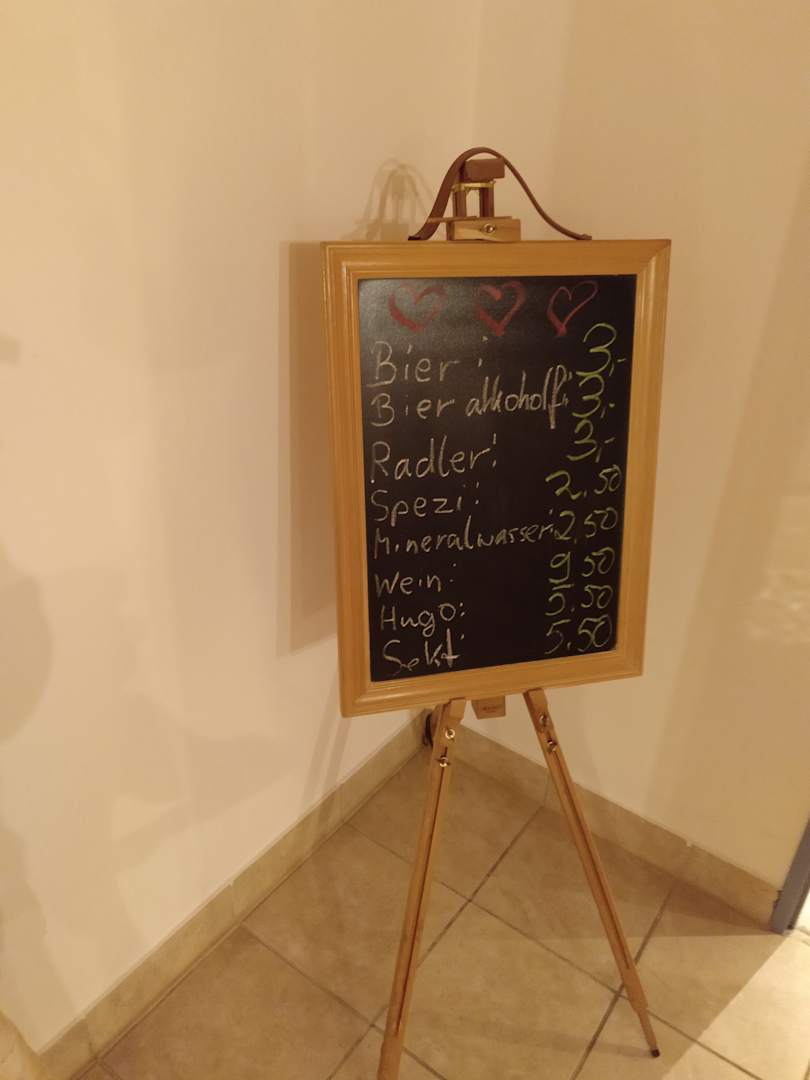 Bier: 3,-
Bier alkoholf.: 3,-
Radler: 3,-
Spezi: 2.50
Mineralwasser: 2.50
Wein: .50
Hugo: 5.50
Sekt: 5.50